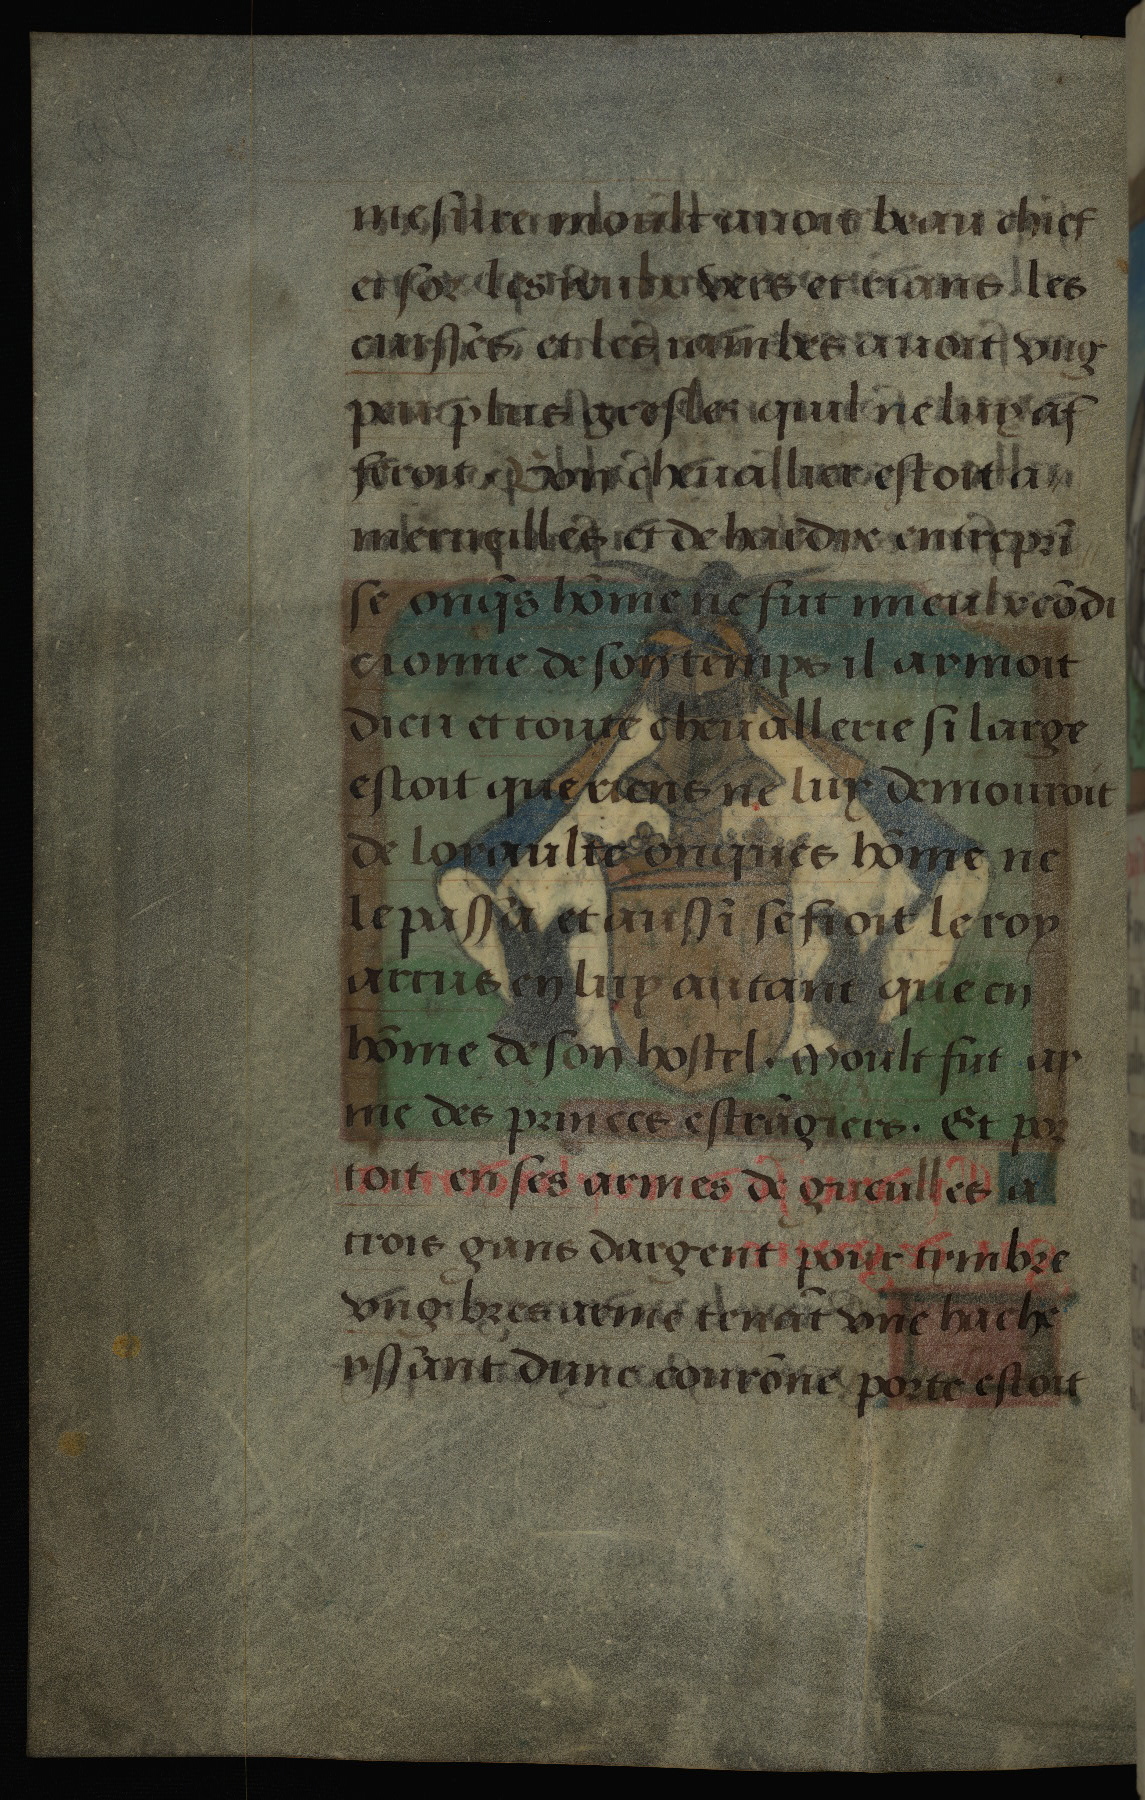 mesure moult auoit beau chief
et sor les ieulx vers et rians les
cuisses et les iambes auoit vng
peu plus grosses quil ne luy af
feroit. Bon cheuallier estoit a
merueilles et de hardye entrepri
se onq̄s hōme ne fut mieulx cōdi
cionne de son temps il aymoit
dieu et toute cheuallerie si large
estoit que riens ne luy demouroit
de loyaulte onques hōme ne
le passa et aussi se fioit le roy
artus en luy autant que en
hōme de son hostel. Moult fut ay
me des princes estrāgiers. Et por
toit en ses armes de gueulles a
trois gans dargent pour tymbre
vng bras arme tenāt vne hache
yssant dune courōne porte estoit